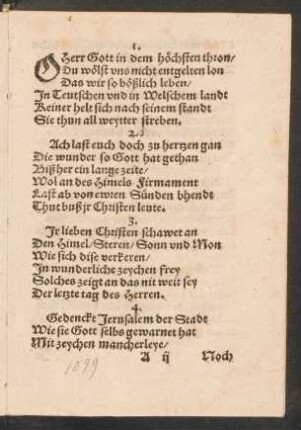 1.
O Herr Gott in dem höchsten thron/
Du wölst vns nicht entgelten lon
Das wir so bößlich leben/
In Teutschen vnd in Welschem landt
Keiner helt sich nach seinem standt
Sie thun all weytter streben.
2.
Ach last euch doch zu hertzen gan
Die wunder so Gott hat gethan
Bißher ein lange zeite/
Wol an des Himels Firmament
Last ab von ewren Sünden bhendt
Thut buß jr Christen leute.
3.
Ir lieben Christen schawet an
Den Himel/Steren/Sonn vnd Mon
Wie sich dise verkeren/
In wunderliche zeychen frey
Solches zeigt an das nit weit sey
Der letzte tag des Herren.
4.
Gedenckt Jerusalem der Stadt
Wie sie Gott selbs gewarnet hat
Mit zeychen mancherleye/
A ij Noch
1099